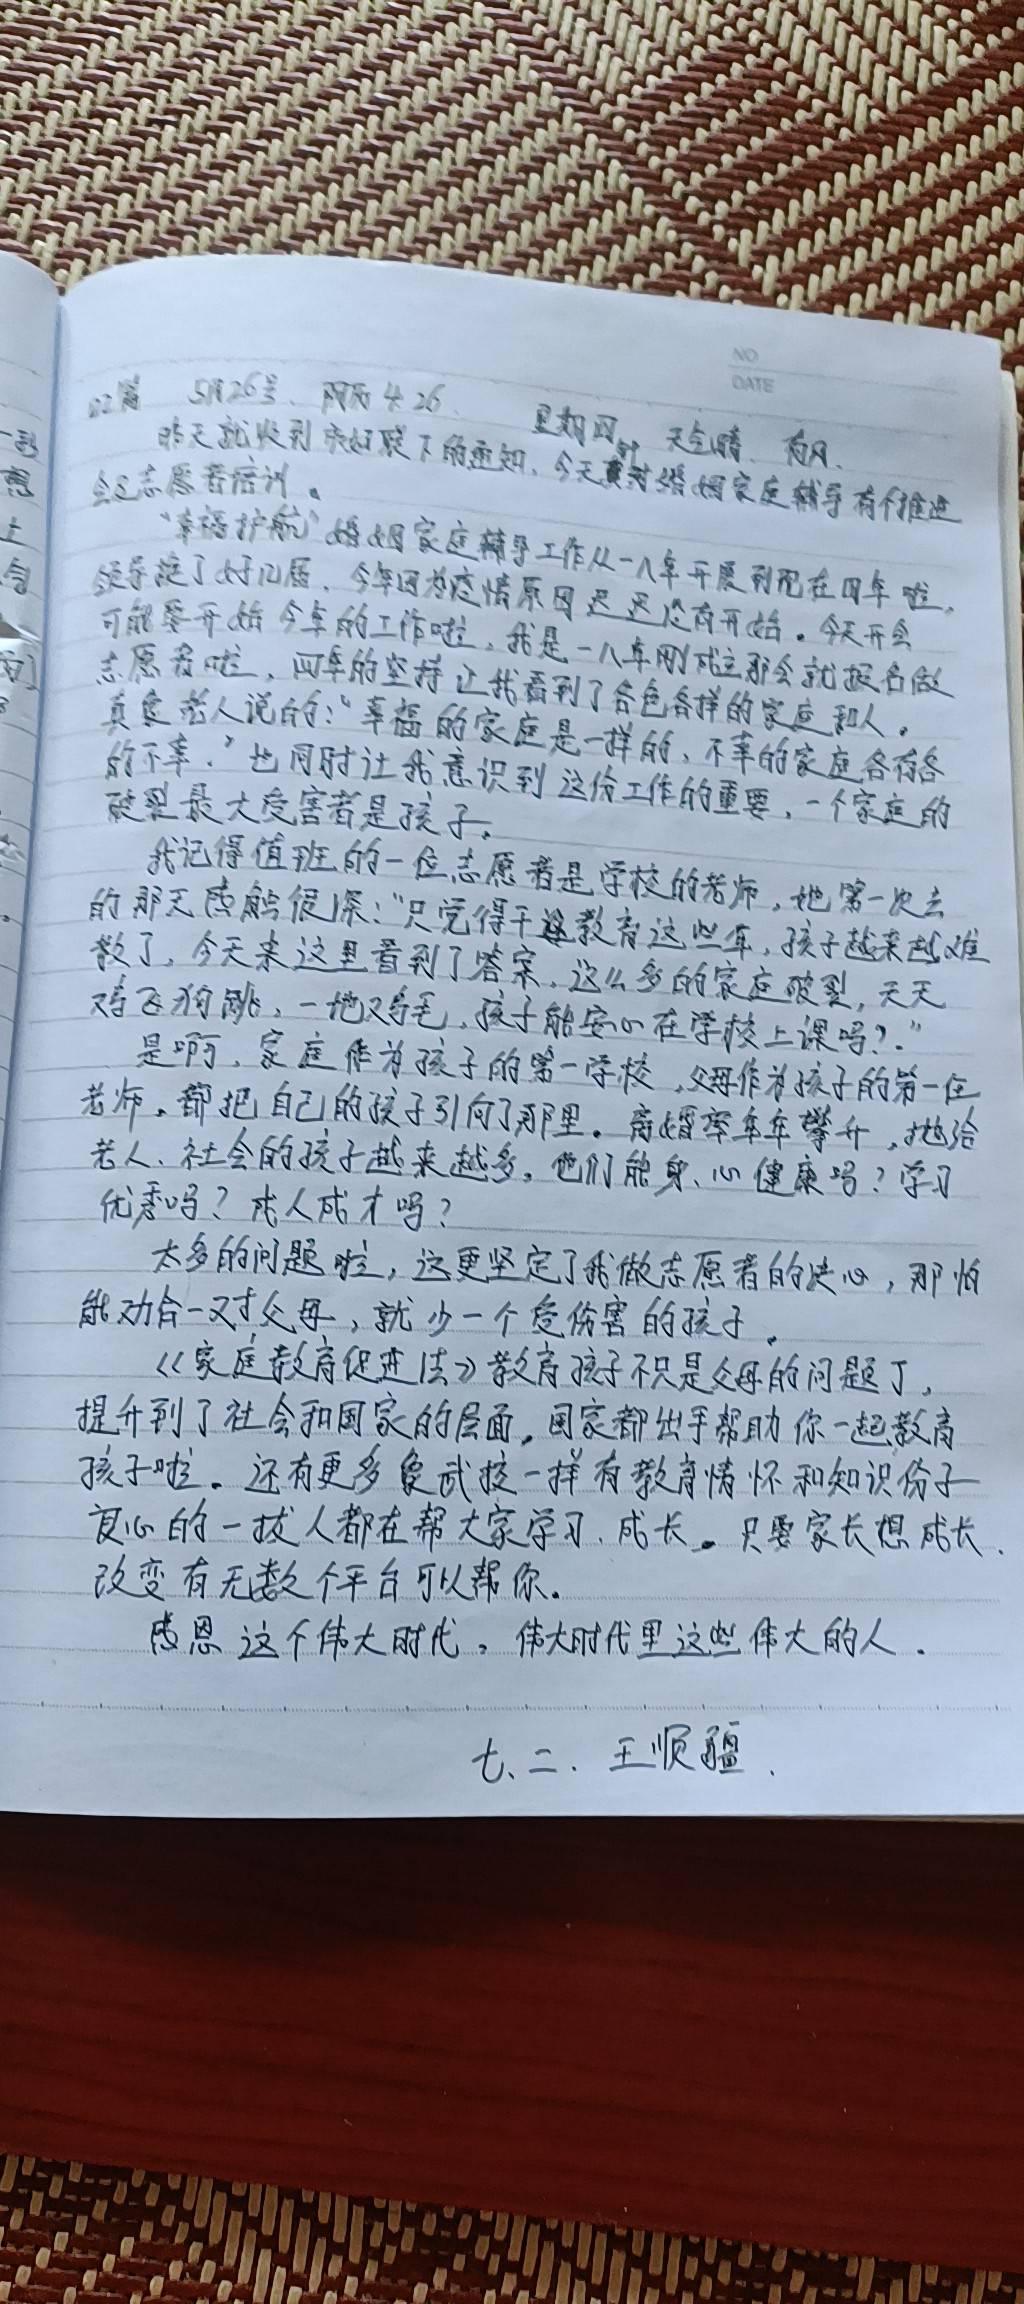 NO
DATE
02篇 5月26号、阴历4.26. 星期四 天气晴、有风.
昨天就收到妇联下的通知、今天针对婚姻家庭辅导有个推进
会之志愿者培训。
“幸福护航”婚姻家庭辅导工作从一八年开展到现在四年啦,
领导换了好几届、今年因为疫情原因迟迟没有开始。今天开会
可能要开始今年的工作啦,我是一八年刚成立那会就报名做
志愿者啦,四年的坚持让我看到了各色各样的家庭和人。
真象老人说的:“幸福的家庭是一样的、不幸的家庭各有各
的不幸.”也同时让我意识到这份工作的重要,一个家庭的
破裂最大受害者是孩子。
我记得值班的一位志愿者是学校的老师,她第一次去
的那天感触很深:“只觉得干教育这些年,孩子越来越难
教了,今天来这里看到了答案,这么多的家庭破裂,天天
鸡飞狗跳,一地鸡毛,孩子能安心在学校上课吗?.”
是啊,家庭作为孩子的第一学校,父母作为孩子的第一任
老师。都把自己的孩子引向了那里。离婚率年年攀升,抛给
老人、社会的孩子越来越多,他们能身、心健康吗?学习
优秀吗?成人成才吗?
太多的问题啦,这更坚定了我做志愿者的决心,那怕
能劝合一对父母,就少一个受伤害的孩子。
《家庭教育促进法》教育孩子不只是父母的问题了,
提升到了社会和国家的层面,国家都出手帮助你一起教育
孩子啦。还有更多象武校一样有教育情怀和知识份子
良心的一拔人都在帮大家学习、成长。只要家长想成长、
改变有无数个平台可以帮你。
感恩这个伟大时代,伟大时代里这些伟大的人.
七、二. 王顺疆.